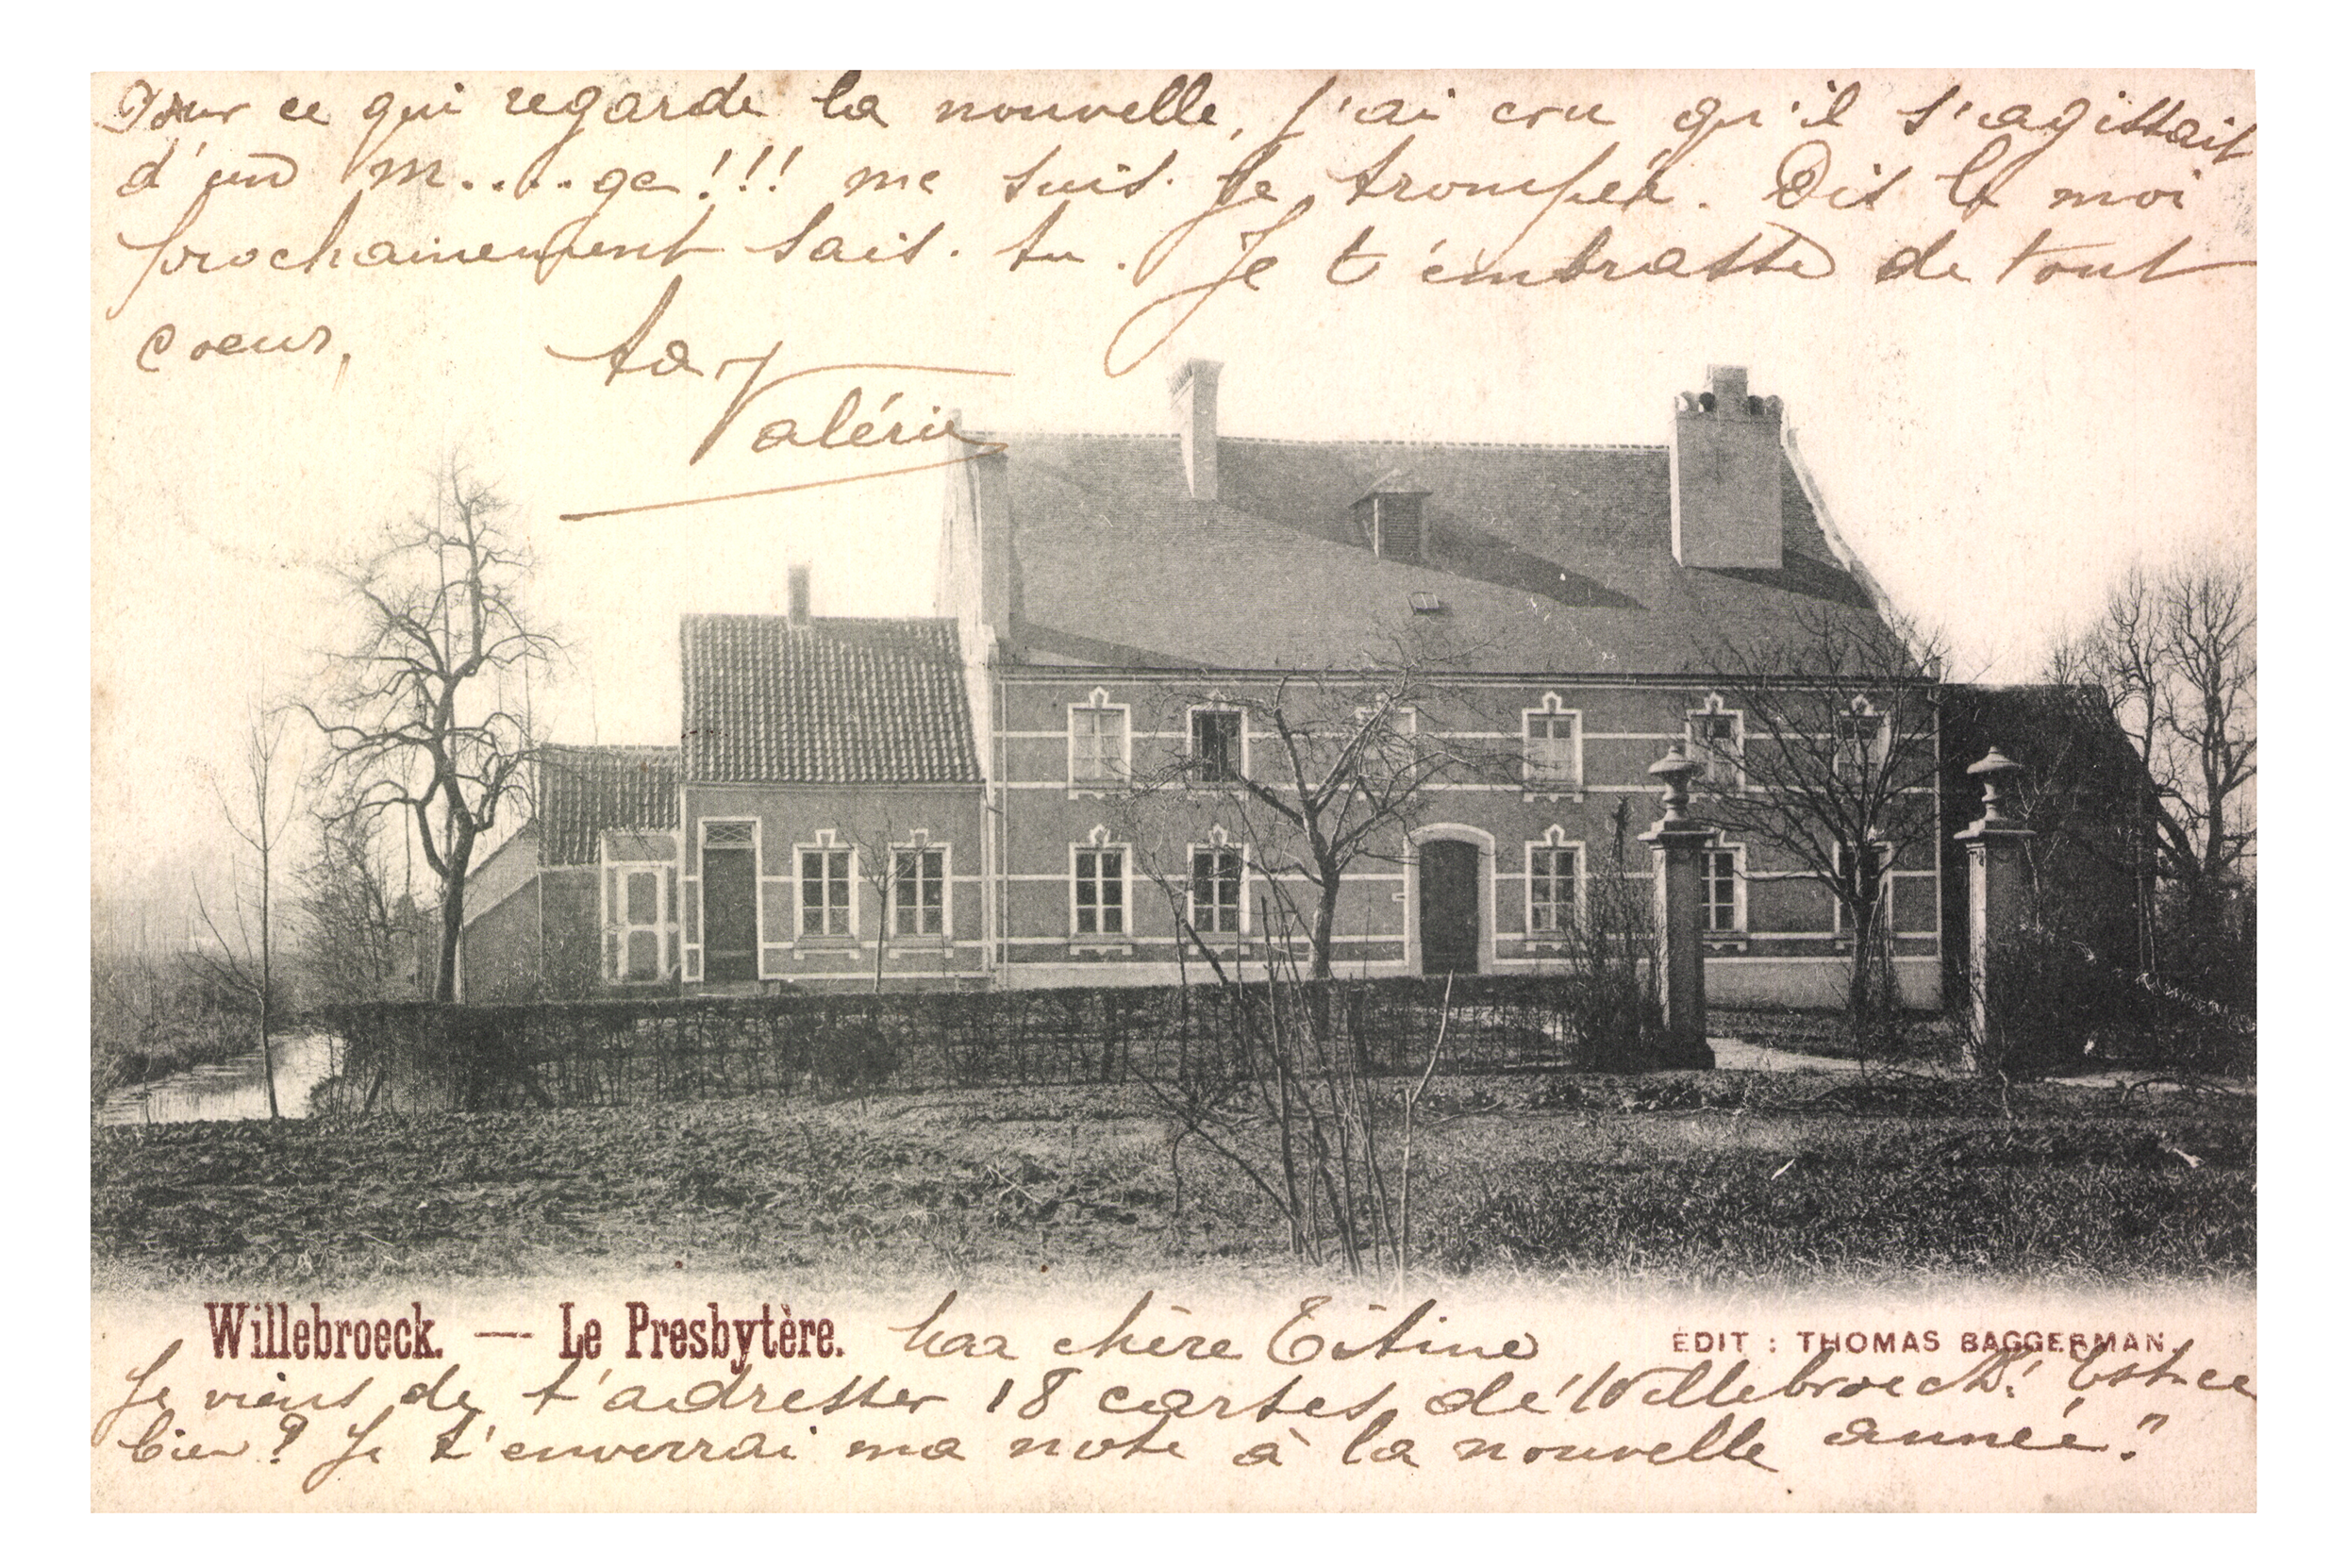 Pour ce qui regarde la nouvelle, j'ai cru qu'il s'agissait
d'un m.....ge!!! me suis je trompée. Dis le moi
prochainement sais-tu. Je t'embrasse de tout
coeur,
ta
Valérie
Willebroeck. — Le Presbytère.
Ma chère Titine
EDIT : THOMAS BAGGERMAN.
Je viens de t'adresser 18 cartes de Willebroeck! Est-ce
bien? Je t'enverrai ma note à la nouvelle année!"